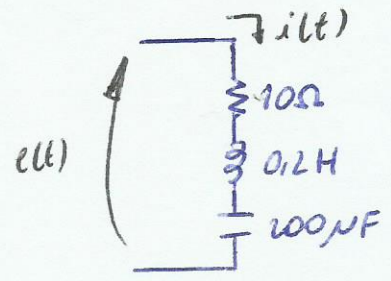 i(t)
10Ω
e(t)
0,2H
200µF